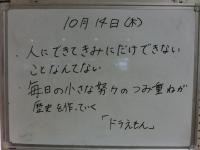 10月14日(木)
・人にできてきみにだけできない
ことなんてない
・毎日の小さな努力のつみ重ねが
歴史を作っていく
「ドラえもん」